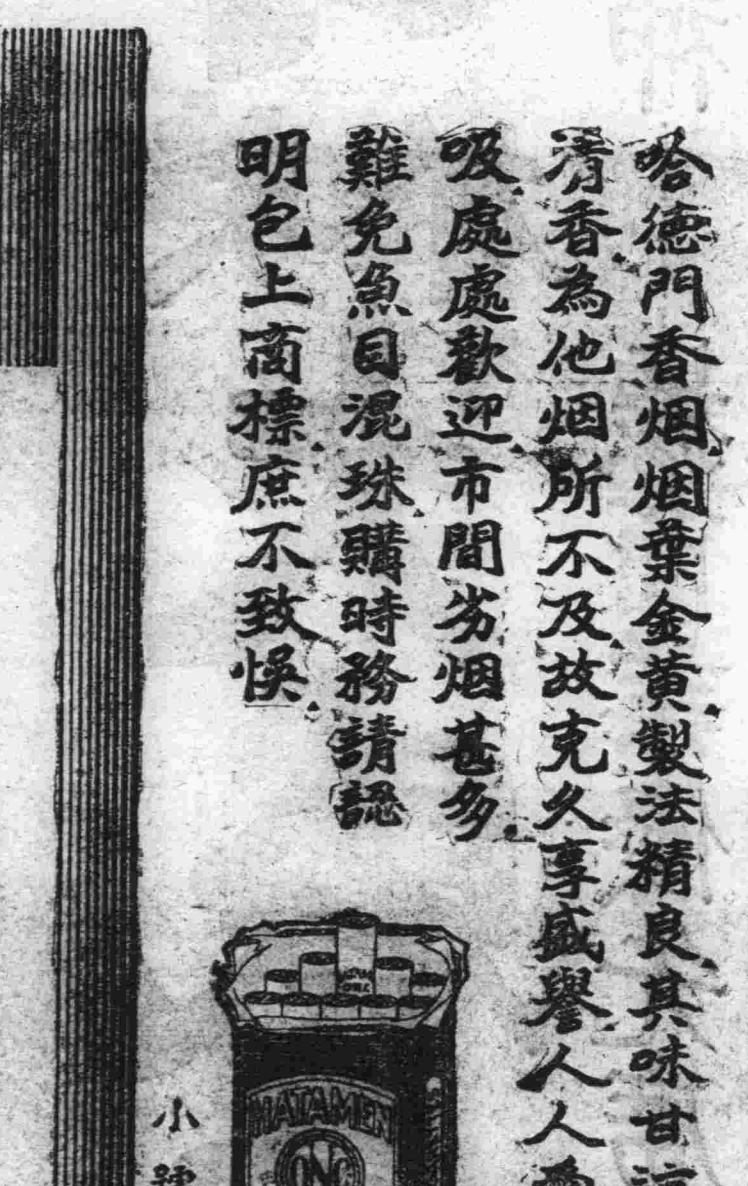 哈德門香烟烟葉金黄製法精良其味甘
清香為他烟所不及故克久享盛譽人人
吸處處歡迎市間劣烟甚多
難免魚目混珠購時務請認
明包上商標庶不致悞
小號
HATAMEN